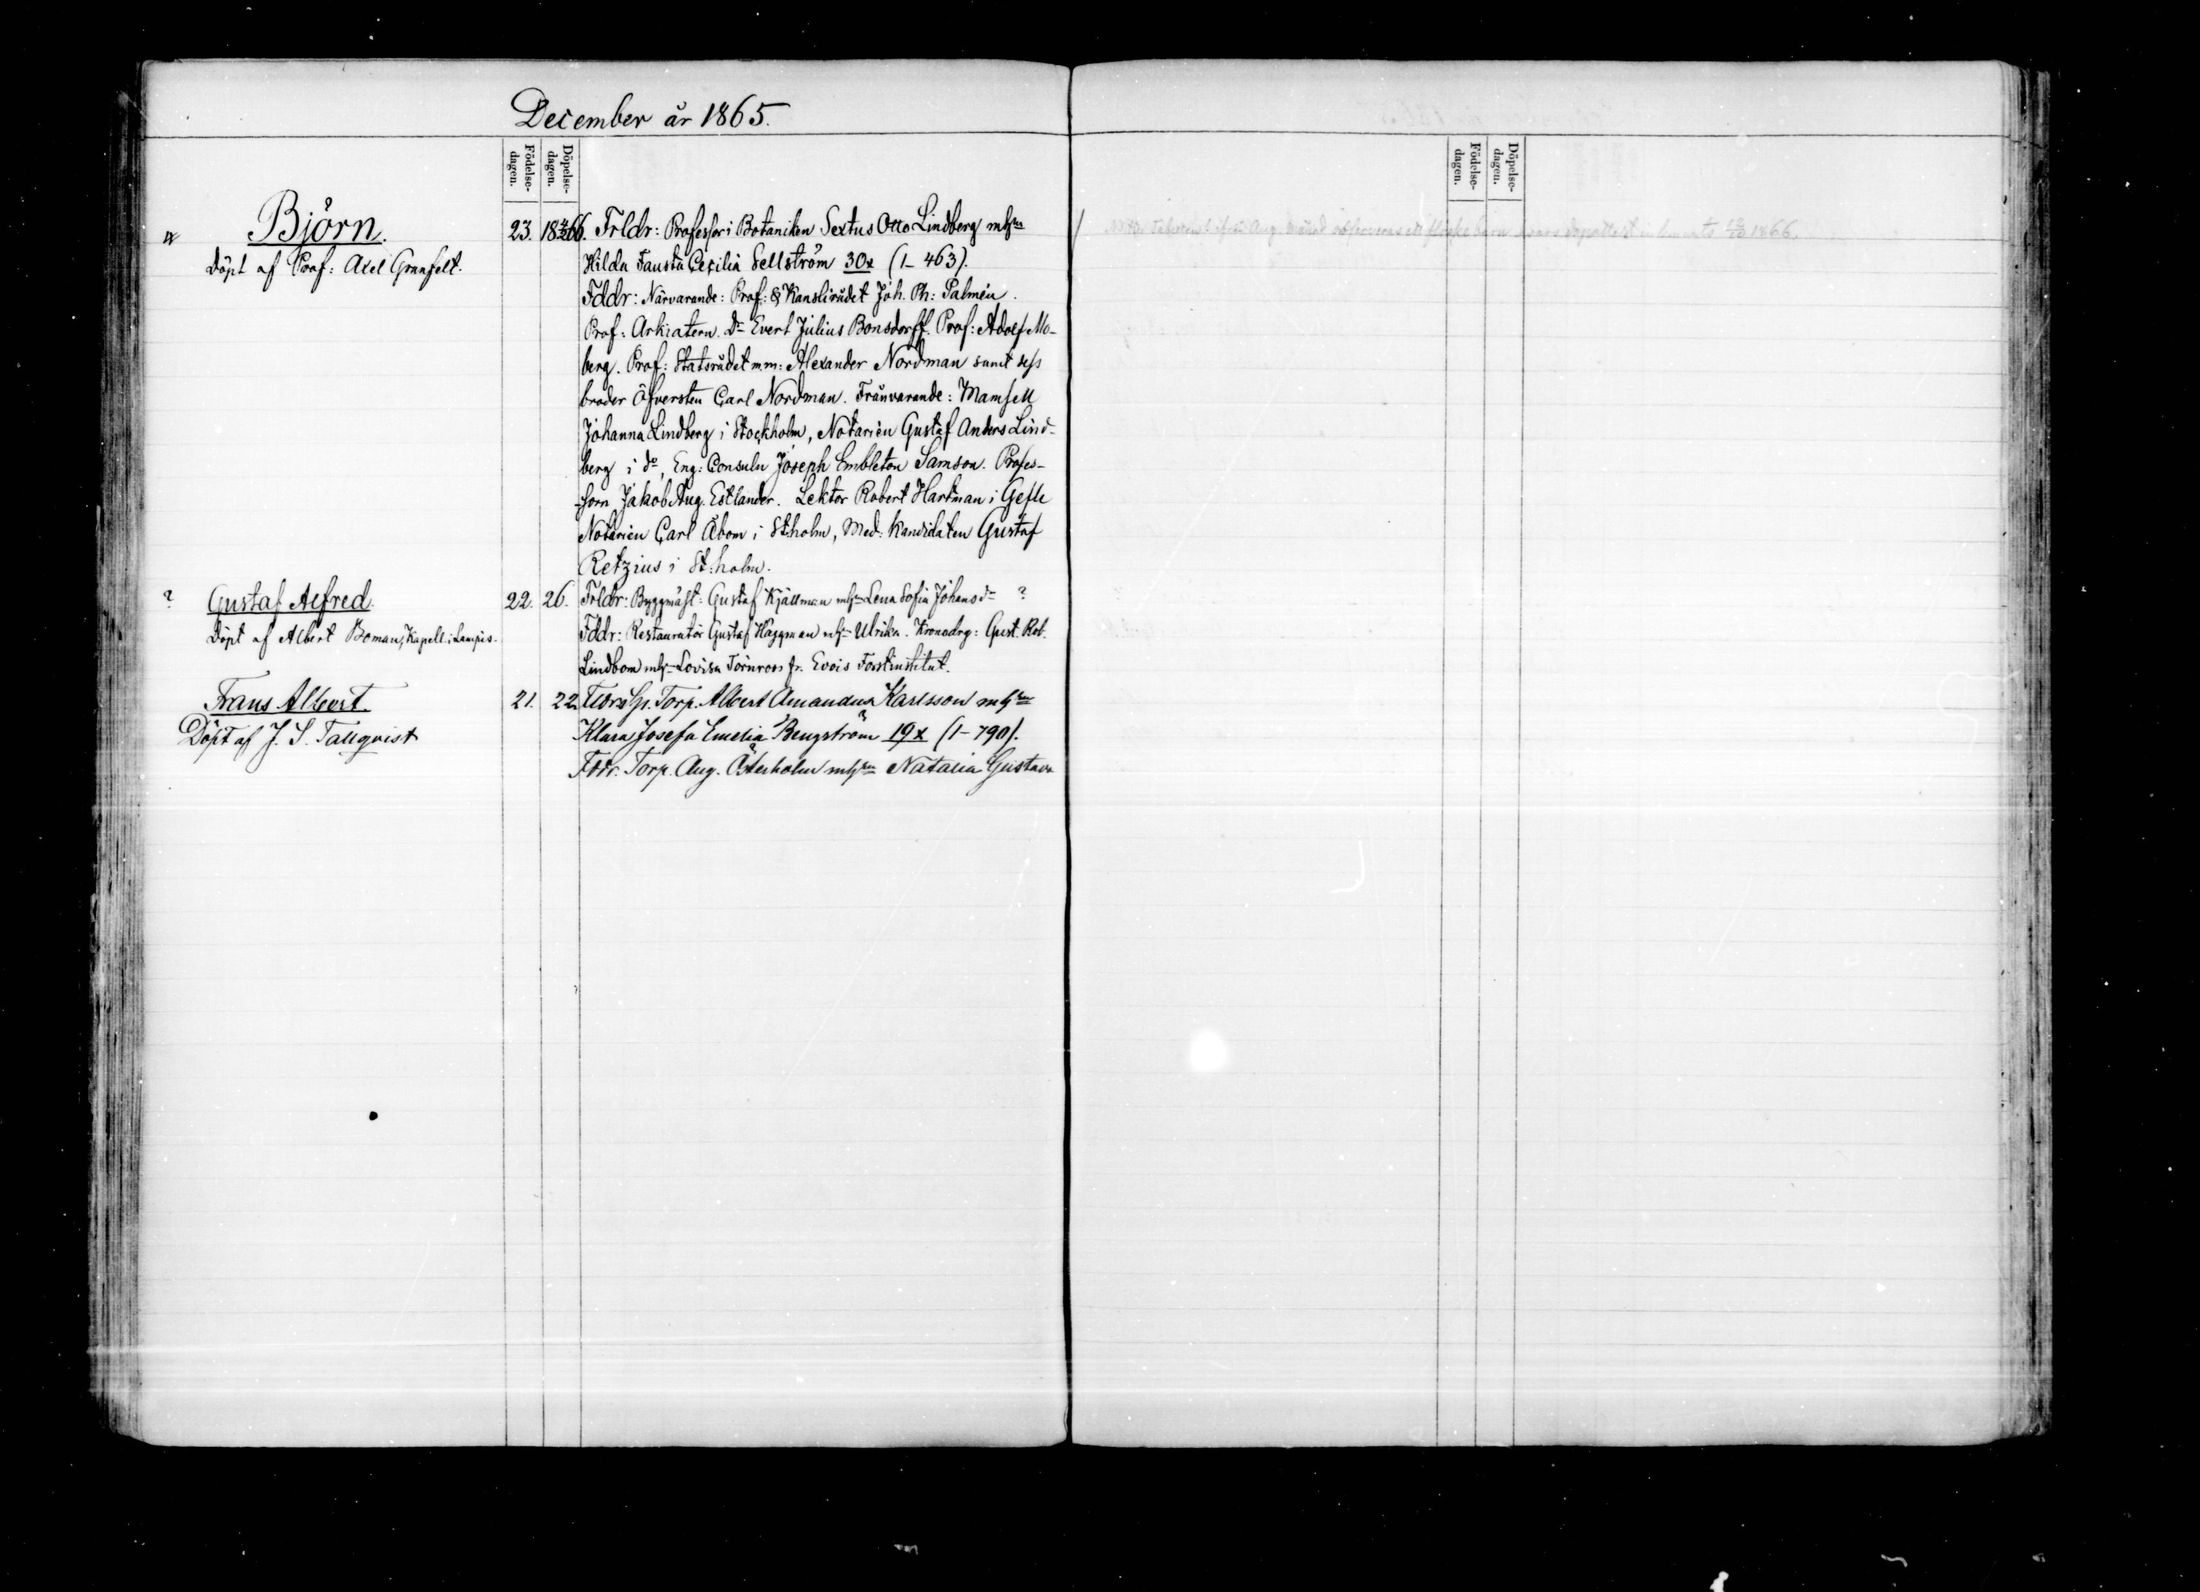 December år 1865.
Födelse-
dagen.
Döpelse-
dagen.
Födelse-
dagen.
Döpelse-
dagen.
Björn.
Döpt af Prof: Axel Granfelt.
23. 66. Frldr: Professor i Botaniken Sextus Otto Lindberg mhu
Hilda Fausta Cecilia Sellström 30x (1-463).
Fddr: Närvarande: Prof: & Kanslirådet Joh. Ph: Palmén.
Prof: Arkiatern. Dr Evert Julius Bonsdorff. Prof: Adolf Mo-
berg. Prof: Statsrådet m.m: Alexander Nordman samt dess
broder Öfversten Carl Nordman. Frånvarande: Mamsell
Johanna Lindberg i Stockholm, Notarien Gustaf Anders Lind-
berg i do, Eng: Consuln Joseph Embleton Samson. Profes-
-sorn Jakob Aug. Estlander. Lektor Robert Hartman i Gefle
Notarien Carl Åbom i St:holm, Med: Kandidaten Gustaf
Retzius i St:holm.
? Gustaf Alfred.
Döpt af Albert Boman, Kapell. i Lampis.
22. 26. Frldr: Byggmäst: Gustaf Kjällman mhu Lena Sofia Johansdr ?
Fddr: Restauratör Gustaf Häggman mhu Ulrika. Kronodrg: Gust. Rob.
Lindbom mhu Lovisa Törnroos fr. Evois Forstinstitut.
Frans Albert.
Döpt af J. S. Tallqvist
21. 22. Torp. Albert Amandus Karlsson mhu
Klara Josefa Emelia Bengström 19x (1-790).
Fddr. Torp. Aug. Österholm mhu Natalia Gustava
Aug. 1866.